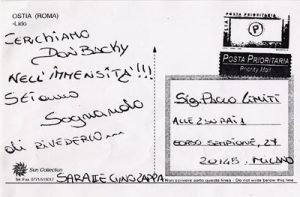 OSTIA (ROMA)
-Lido
CERCHIAMO
DON BACKY
NELL'IMMENSITÀ!!!
SEIANO
SOGNANDO
di RIVEDERLO...
SARA E LINO ZAPPA
POSTA PRIORITARIA
P
POSTA PRIORITARIA
Priority Mail
Sig. PAOLO LIMITI
CORSO SEMPIONE, 27
20145 MILANO
Sun Collection
Non scrivere sotto questa linea - Do not write below this line